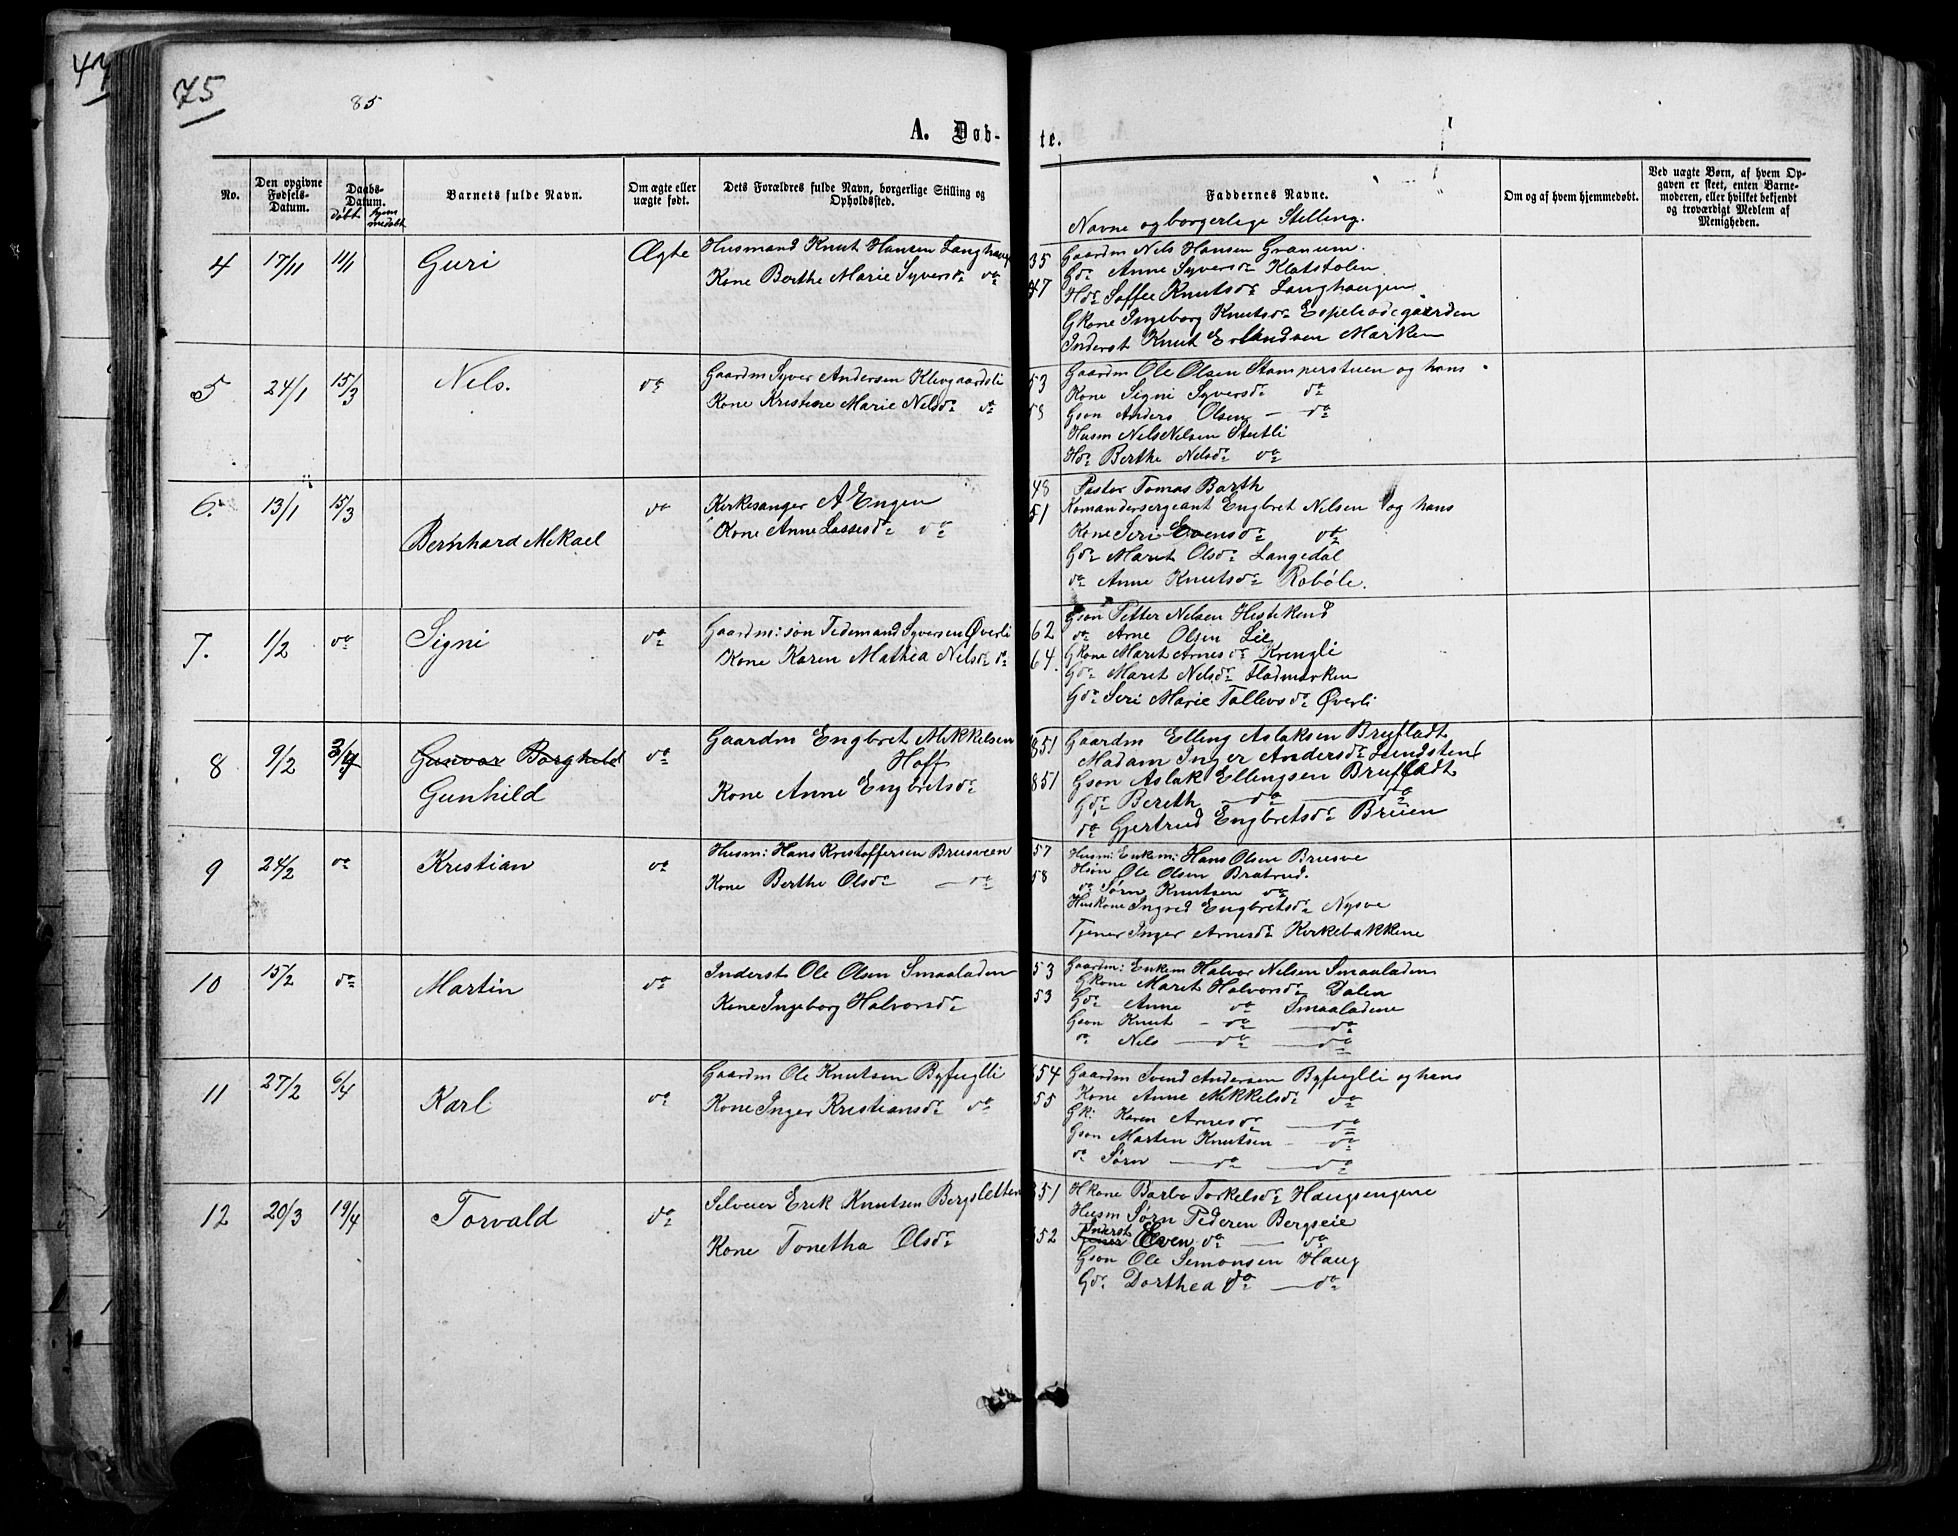 44
75
85
A. Døb-
te.
No.
Den opgivne Fødsels-Datum.
Daabs-Datum.
døbt hjemmedøbt
Barnets fulde Navn.
Om ægte eller uægte født.
Dets Forældres fulde Navn, borgerlige Stilling og Opholdssted.
Faddernes Navne.
Navne og borgerlige Stilling.
Om og af hvem hjemmedøbt.
Ved uægte Børn, af hvem Opgaven er skeet, enten Barnemoderen, eller hvilket bekjendt og troværdigt Medlem af Menigheden.
4 17/11 11/1 Guri Ægte
Husmand Knut Hansen Langhaug
Kone Berthe Marie Syversdr do
35
47
Gaardm Nels Hansen Granum.
Gdr Anne Syversdr Klatstolen
Hdr Soffee Knutsdr Langhaugen
Gkone Ingeborg Knutsdr Espelidegaarden
Inderst Knut Erlandsen Marken
5 24/1 15/3 Nels. do
Gaardm Syver Andersen Klevgaardsli
Kone Kristine Marie Nelsdr do
53
58
Gaardm Ole Olsen Stamperstuen og hans
Kone Signi Syversdr do
Gson Anders Olsen — do
Husm Nels Nelsen Stutli
Hdr Berthe Nelsdr do
6. 13/1 15/3 Bernhard Mikael do
Kirkesanger A Engen
Kone Anne Lassesdr do
48
51
Pastor Tomas Barth
Komandersergeant Engbret Nilsen og hans
Kone Siri Evensdr do
Gdr Marit Olsdr Langedal
do Anne Knutsdr Robøle.
7. 1/2 do Signi do
Gaardm:søn Tidemand Syversen Øverli
Kone Karen Mathea Nelsdr do
62
64.
Gson Petter Nelsen Hestekind
do Arne Olsen Lie
Gkone Marit Arnesdr Krengli
Gdr Marit Nelsdr Fladmarken
Gdr Siri Marie Tollevsdr Øverli
8 9/2 3/4 Gunvor Borghild do
Gunhild
Gaardm Engbret Mikkelsen
Hoff
Kone Anne Engbretsdr
851
851
Gaardm Elling Aslaksen Brufladt
Madam Inger Andersdr Lundsten
Gson Aslak Ellingsen Brufladt
Gdr Bereth — do — do
do Gjertrud Engbretsdr Bruen
9 24/2 do Kristian do
Husm: Hans Kristoffersen Brusveen
Kone Berthe Olsdr — do
57
58
Husm: Enkem: Hans Olsen Brusve
Hson Ole Olsen Bratrud.
do Sørn Knutsen do
Huskone Ingrid Engbretsdr Nysve
Tjener Inger Arnesdr Kirkebakkene
10 15/2 do Martin do
Inderst Ole Olsen Smaaladen
Kone Ingeborg Halvorsdr
53
53
Gaardm: Enkem Halvor Nelsen Smaaladen
Gkone Marit Halvorsdr Dalen
Gdr Anne do Smaaladene
Gson Knut — do — do
do Nels — do — do
11 27/2 6/4 Karl do
Gaardm Ole Knutsen Byfuglli
Kone Inger Kristiansdr do
54
55
Gaardm Svend Andersen Byfuglli og hans
Kone Anne Mikkelsdr do
Gk: Karen Arnesdr — do
Gson Martin Knutsen — do
do Sørn — do — do
12 20/3 19/4 Torvald do
Selveier Erik Knutsen Bergsletten
Kone Tonetha Olsdr
851
852
Hkone Barbo Torkelsdr Haugsengene
Husm Sørn Pederen Bergseie
Inderst
Tjener Even do — do
Gson Ole Simonsen Haug
Gdr Dorthea do — do